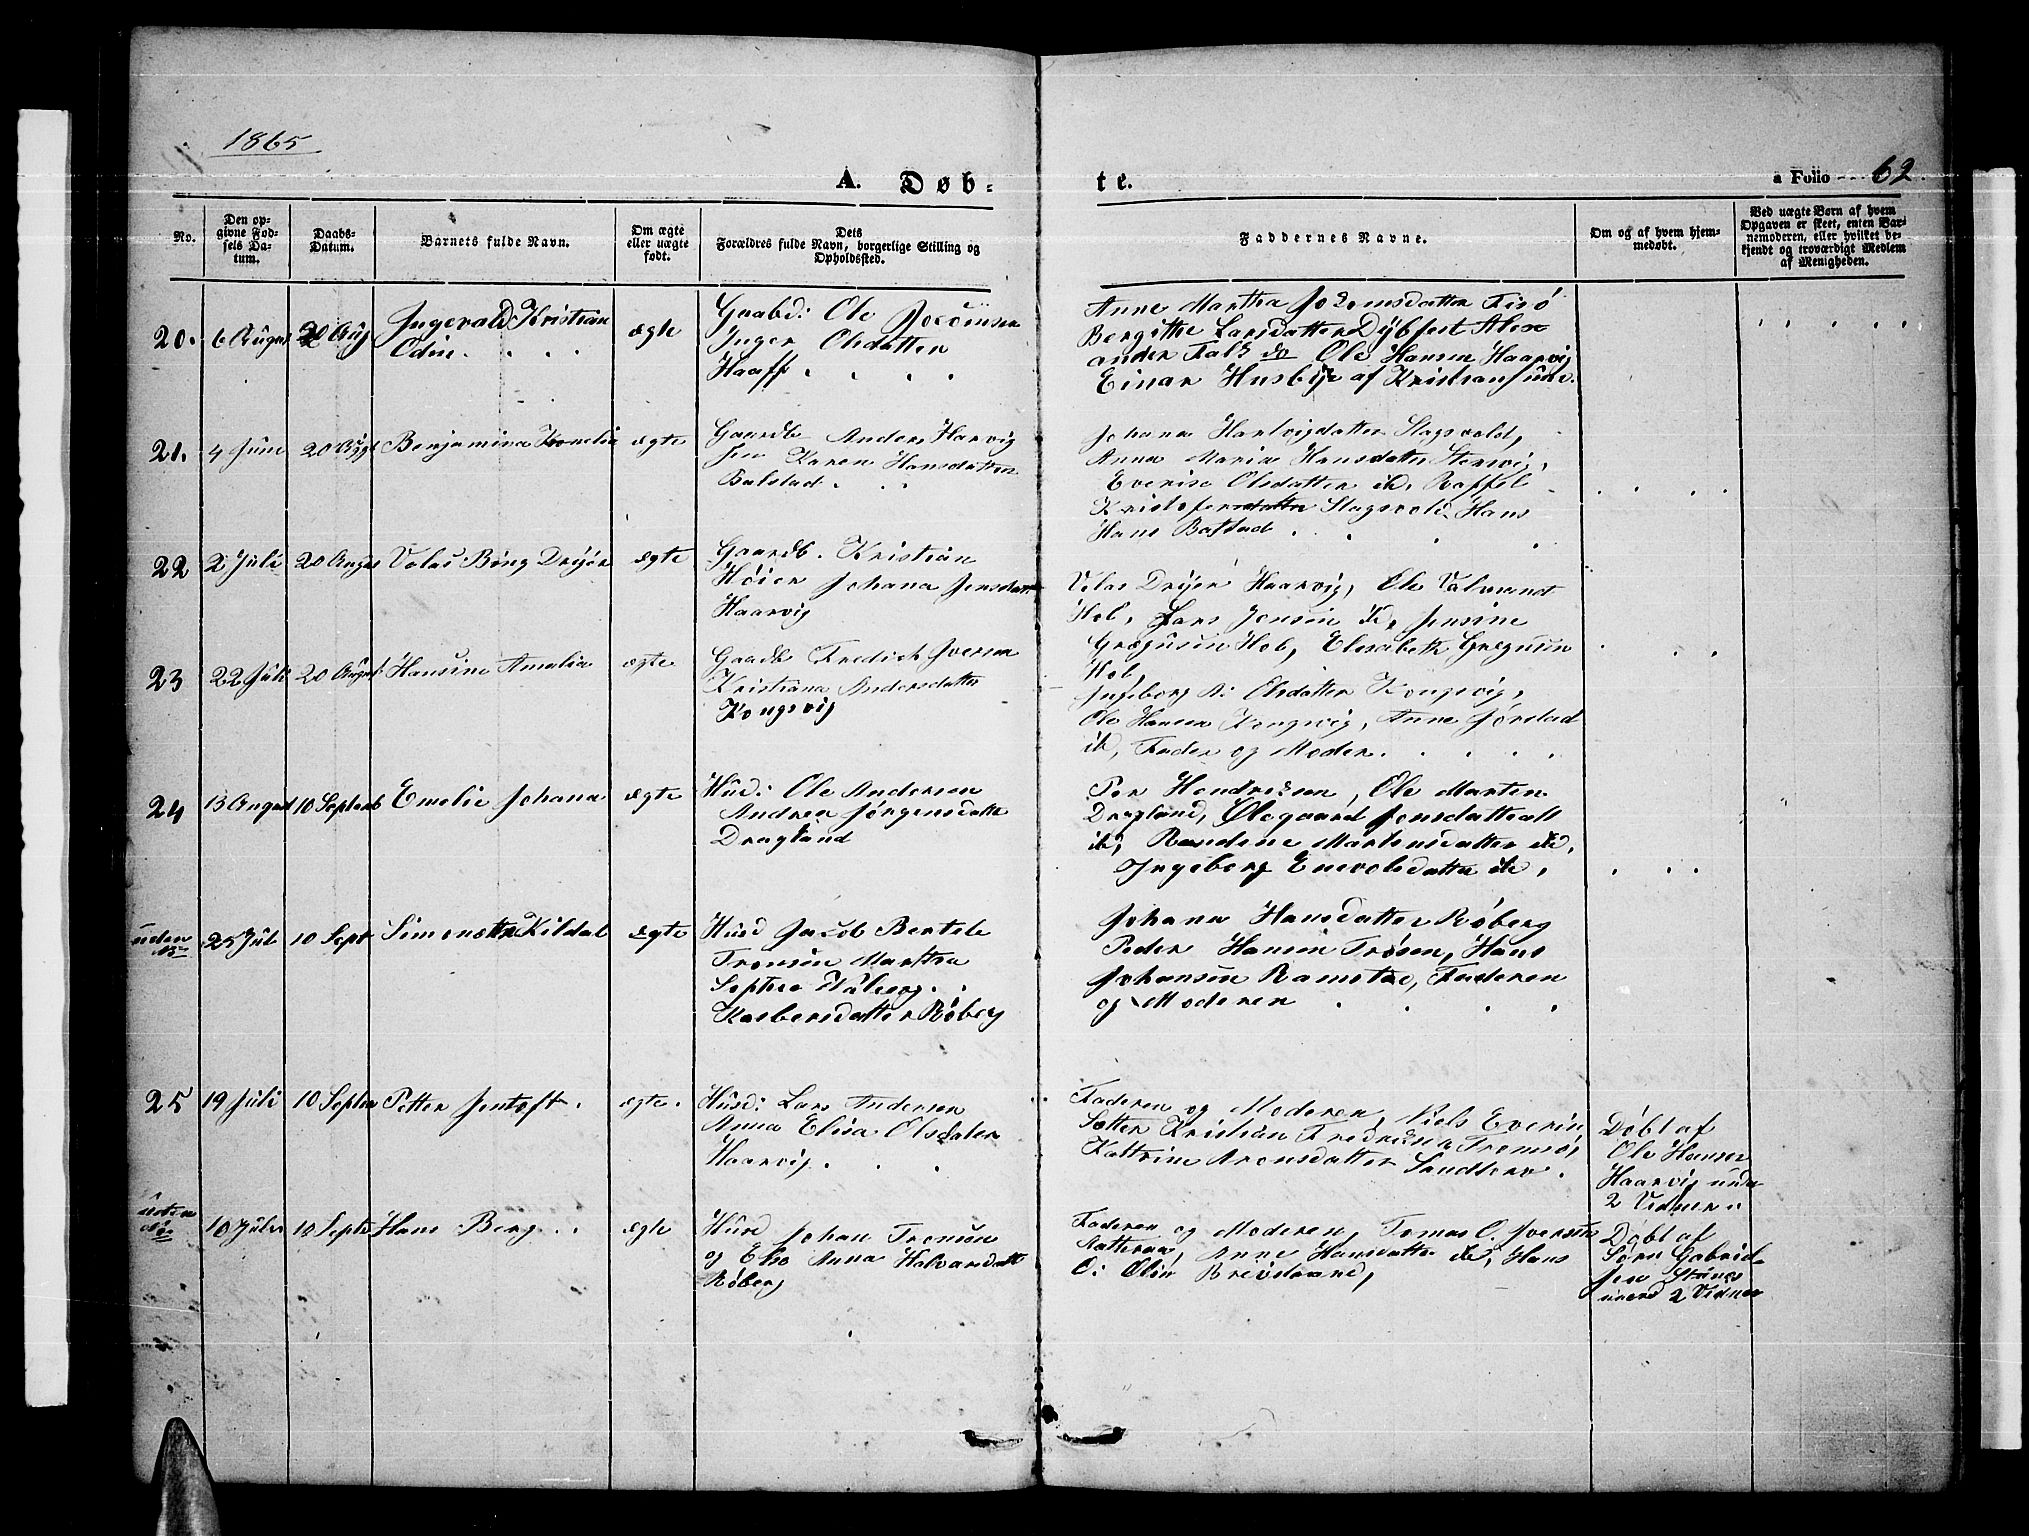 1865
A. Døb-
te.
a Folio --- 62.
No.
Den op-
givne Fød-
sels Da-
tum.
Daabs-
Datum.
Barnets fulde Navn.
Om ægte
eller uægte
født.
Dets
Forældres fulde Navn, borgerlige Stilling og
Opholdssted.
Faddernes Navne.
Om og af hvem hjem-
medøbt.
Ved uægte Børn af hvem
Opgaven er skeet, enten Bar-
nemoderen, eller hvilket be-
kjendt og troværdigt Medlem
af Menigheden.
20. 6 August 20 Aug Ingevald Kristian
Odin.
ægte
Gaabd: Ole
Inger Olsdatter
Haaff
Anne Martha
Bergithe Larsdatter Dybfest Alex
ander Falk do Ole Hansen Haarvig
Einar Husbye af Kristiansund.
21. 4 Juni 20 Augst Benjamina Kornelia ægte
Gaardb Anders Harvig
sen Karen Hansdatter
Balstad
Johana Hartvigdatter Slagsvold,
Anna Maria Hansdatter
Everise Olsdatter ib, Raffel
Kristofer Slagsvold Hans
Hans
22 2 Juli 20 August Volas Bing Dreyer ægte
Gaardb. Kristian
Høier Johana Jensdatter
Haarvig
Volas Dreyer Haarvig, Ole
Hol, Lars Jensen ib, Jensine
Gregusen Hol, Elesabeth Gregusen
Hol,
23 22 Juli 20 August Hansine Amalia ægte
Gaardb Fredrik Iversen
Kristiana Andersdatter
Kongsvig
Ingeborg A: Olsdatter Kongsvig,
Ole Hansen Kongsvig, Anne Jørstad
ib, Fader og Moder.
24 13 August 10 Septemb Emelie Johana ægte
Husd: Ole Andersen
Andrea Jørgensdatte
Dragland
Per Hendriksen, Ole Marten
Dragland, Olegaard Jensdatter
ib, Randine Martensdatter ib,
Ingeborg Enevolsdatter ib,
uden
No
25 Juli 10 Sept Simonette Kildal ægte
Husd Jacob Bertele
Tronsen Martha
Kasbersdatter Røberg
Johana Hansdatter Røberg
Peder Hansen Trøsen, Hans
Johansen Ramstad, Faderen
og Moderen
25 19 Juli 10 Septem Petter Jentoft. ægte.
Husd: Lars Andersen
Anna Elisa Olsdater
Haarvig.
Faderen og Moderen, Niels Everin
Sætter Kristian Tromsø,
Kathrine Aronsdatter
Døbt af
Ole Hansen
Haarvig under
2 Vidner.
uden
No.
10 Juli 10 Septe Hans Berg ægte
Husd Johan Tronsen
og Else Anna Halvarsdatt
Røberg
Faderen og Moderen, Tomas C. Iversen
Anne Hansdatter ib, Hans
O: Olsen
Døbt af
Søren Gabriel-
sen
2 Vidner